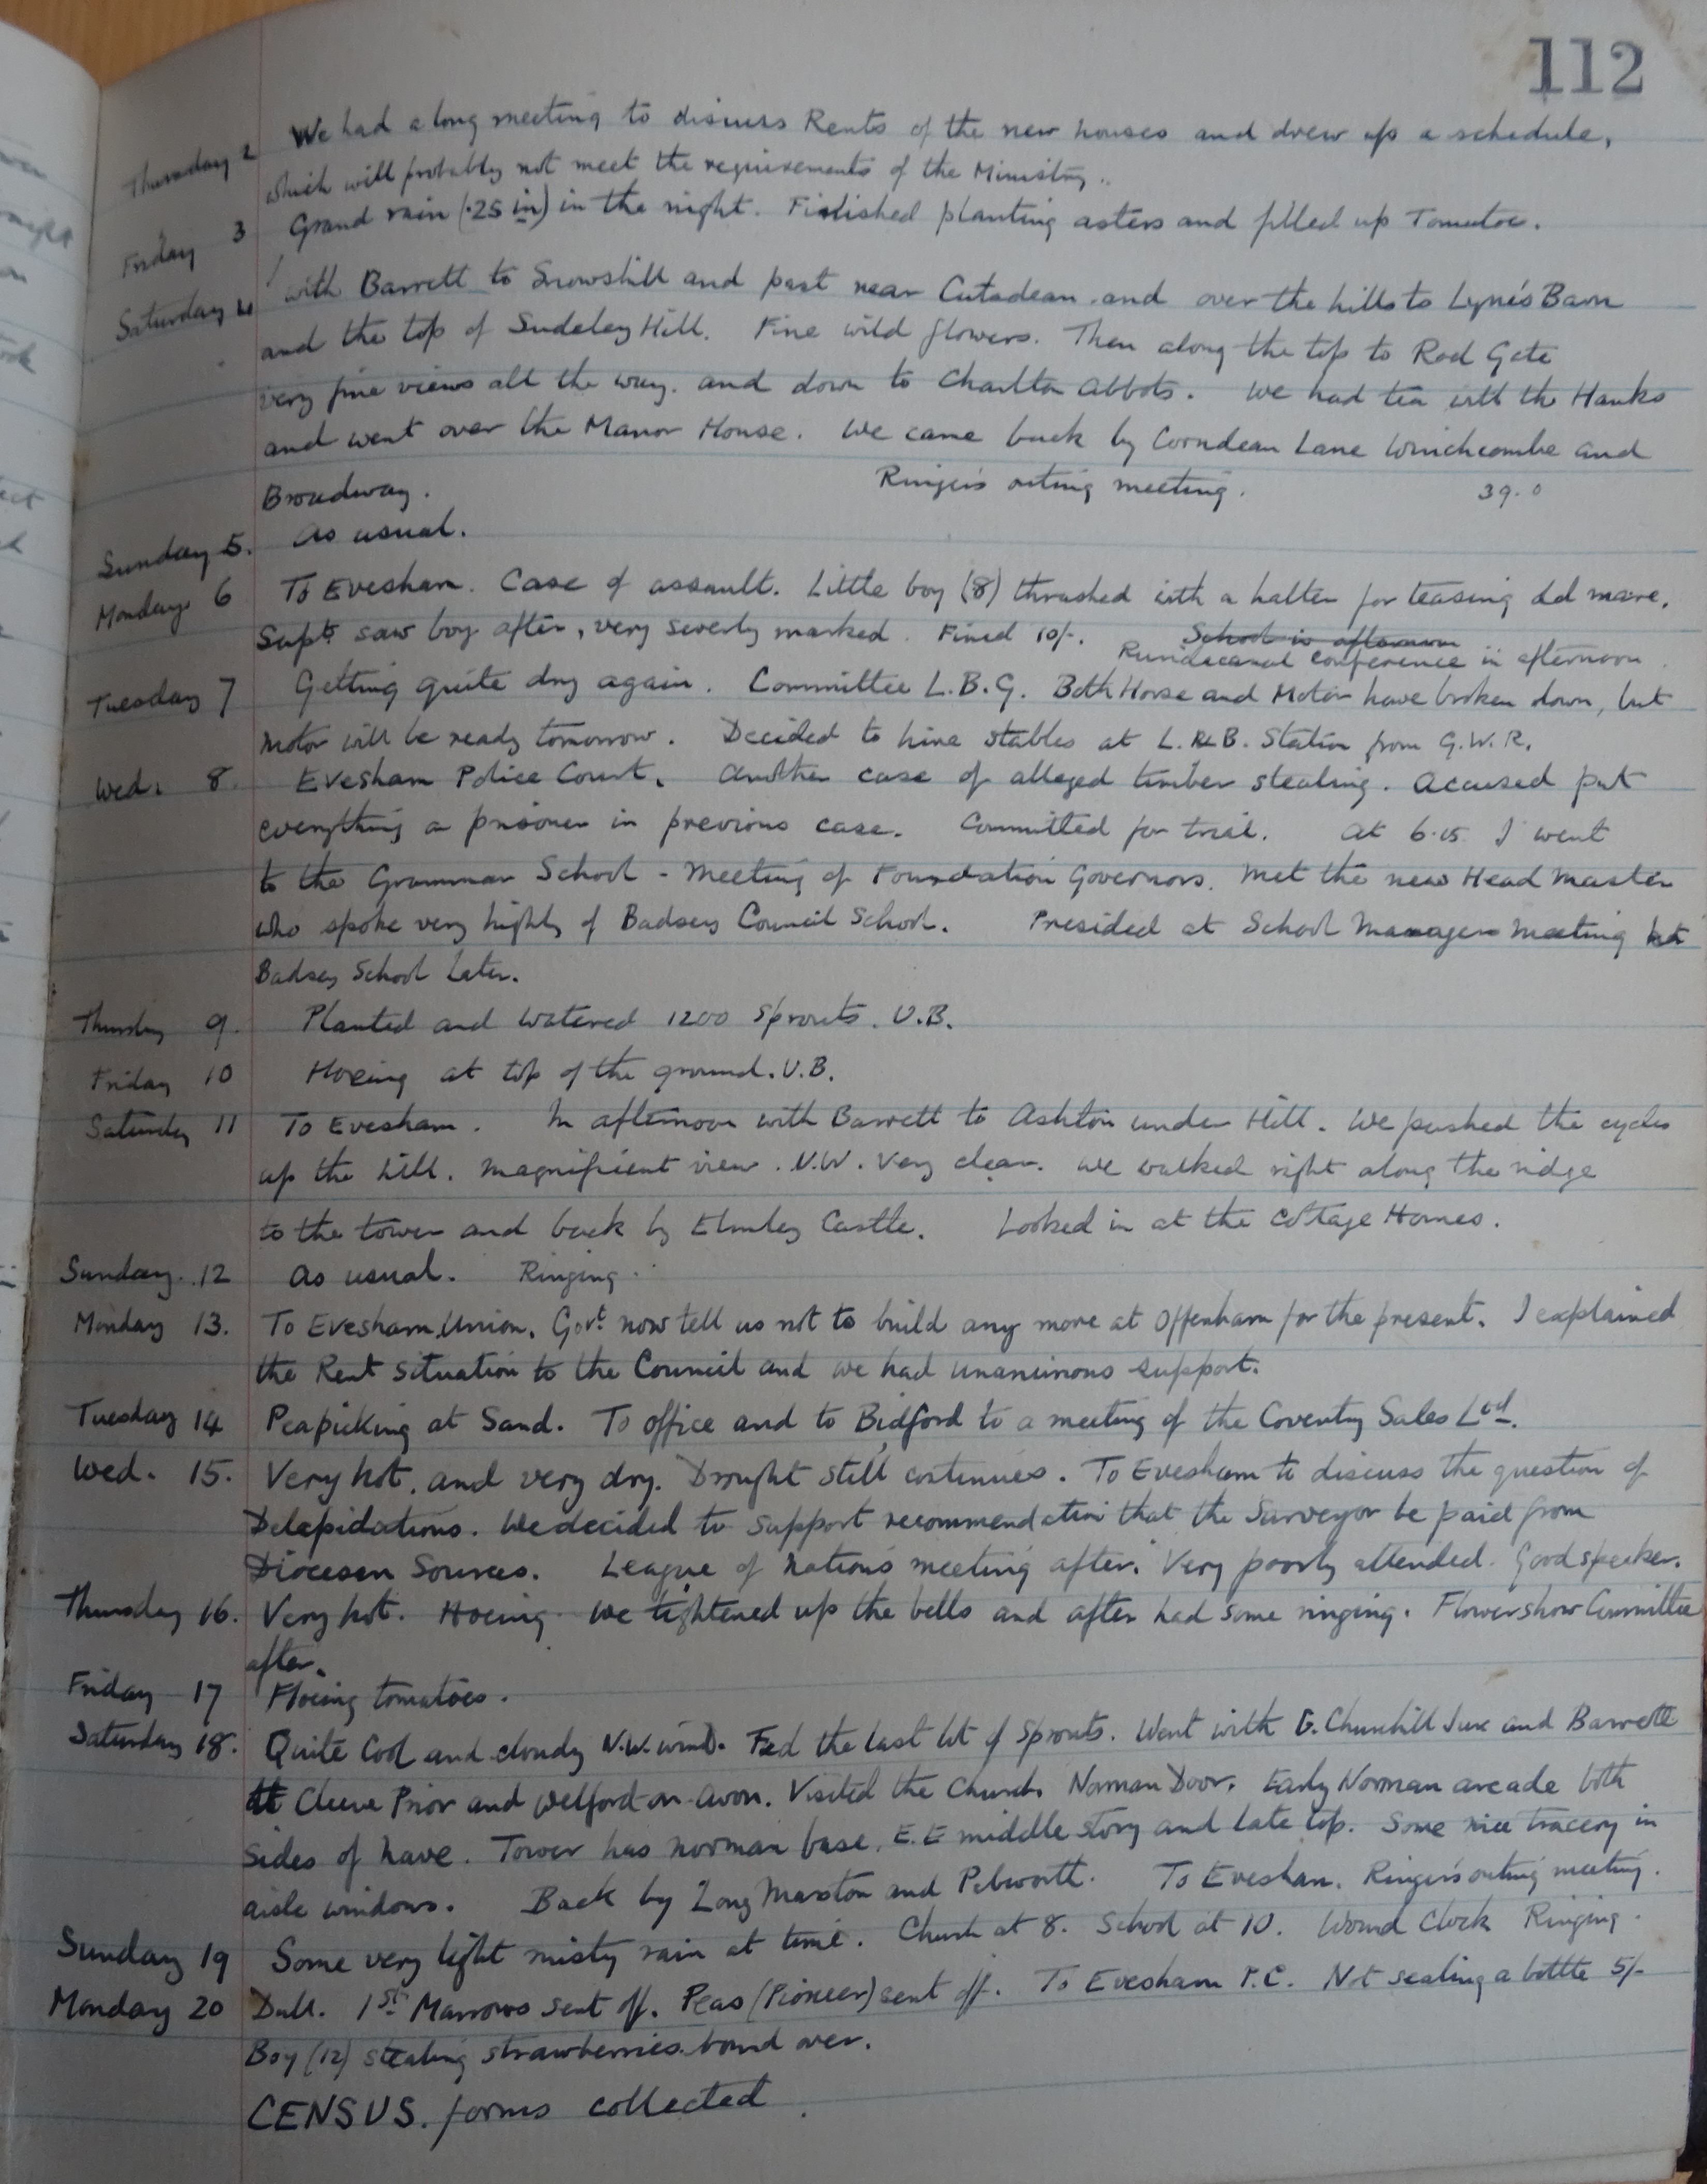 112
Thursday 2 We had a long meeting to discuss Rents of the new houses and drew up a schedule,
which will probably not meet the requirements of the Ministry..
Friday 3 Grand rain (.25 in) in the night. Finished planting asters and filled up Tomatoes.
Saturday 4 with Barrett to Snowshill and past near Cutsdean and over the hills to Lyne's Barn
and the top of Sudeley Hill. Fine wild flowers. Then along the top to Rod Gate
very fine views all the way. and down to Charlton Abbots. We had tea with the Hanks
and went over the Manor House. We came back by Corndean Lane Winchcombe and
Broadway. Ringers outing meeting. 39.0
Sunday 5. As usual.
Monday 6 To Evesham. Case of assault. Little boy (8) thrashed with a halter for teasing old mare.
Supt. saw boy after, very severly marked. Fined 10/-. School in afternoon
Ruridecanal conference in afternoon.
Tuesday 7 Getting quite dry again. Committee L.B.G. Both Horse and Motor have broken down, but
motor will be ready tomorrow. Decided to hire stables at L. & B. Station from G.W.R.
Wed. 8. Evesham Police Court. Another case of alleged timber stealing. Accused put
everything a prisoner in previous case. Committed for trial. At 6.15 I went
to the Grammar School - Meeting of Foundation Governors. Met the new Head Master
who spoke very highly of Badsey Council School. Presided at School Managers Meeting at
Badsey School later.
Thursday 9. Planted and watered 1200 Sprouts. U.B.
Friday 10 Hoeing at top of the ground. U.B.
Saturday 11 To Evesham. In afternoon with Barrett to Ashton under Hill. We pushed the cycles
up the hill. Magnificent view. N.W. Very clear. We walked right along the ridge
to the tower and back by Elmley Castle. Looked in at the Cottage Homes.
Sunday. 12 As usual. Ringing.
Monday 13. To Evesham Union. Govt. now tell us not to build any more at Offenham for the present. I explained
the Rent situation to the Council and we had unanimous support.
Tuesday 14 Peapicking at Sand. To office and to Bidford to a meeting of the Coventry Sales Ltd.
Wed. 15. Very hot, and very dry. Drought still continues. To Evesham to discuss the question of
Delapidations. We decided to support recommendation that the Surveyor be paid from
Diocesan Sources. League of Nations meeting after. Very poorly attended. Good speaker.
Thursday 16. Very hot. Hoeing. We tightened up the bells and after had some ringing. Flower show Committee
after.
Friday 17 Hoeing tomatoes.
Saturday 18. Quite cool and cloudy N.W. wind. Fed the last lot of Sprouts. Went with G. Churchill Junr and Barrett
to Cleeve Prior and Welford-on-Avon. Visited the Church. Norman Door. Early Norman arcade both
sides of nave. Tower has norman base, E.E middle story and late top. Some nice tracery in
aisle windows. Back by Long Marston and Pebworth. To Evesham. Ringers outing meeting.
Sunday 19 Some very light misty rain at time. Church at 8. School at 10. Wound Clock Ringing.
Monday 20 Dull. 1st Marrows sent off. Peas (Pioneer) sent off. To Evesham P.C. Not sealing a bottle 5/-
Boy (12) stealing strawberries bound over.
CENSUS. forms collected